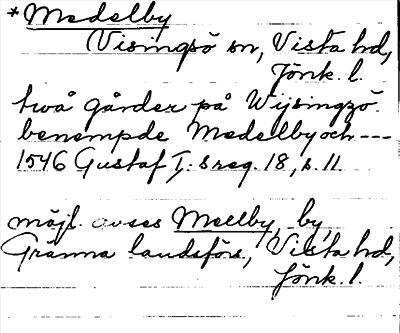 *Medelby
Visingsö sn, Vista hd,
Jönk. l.
twå gårder på Wijsingzö
benempde Medellby och ---
1546 Gustaf I:s reg. 18, s. 11.
möjl. avses Mellby, by,
Gränna landsförs., Vista hd,
Jönk. l.